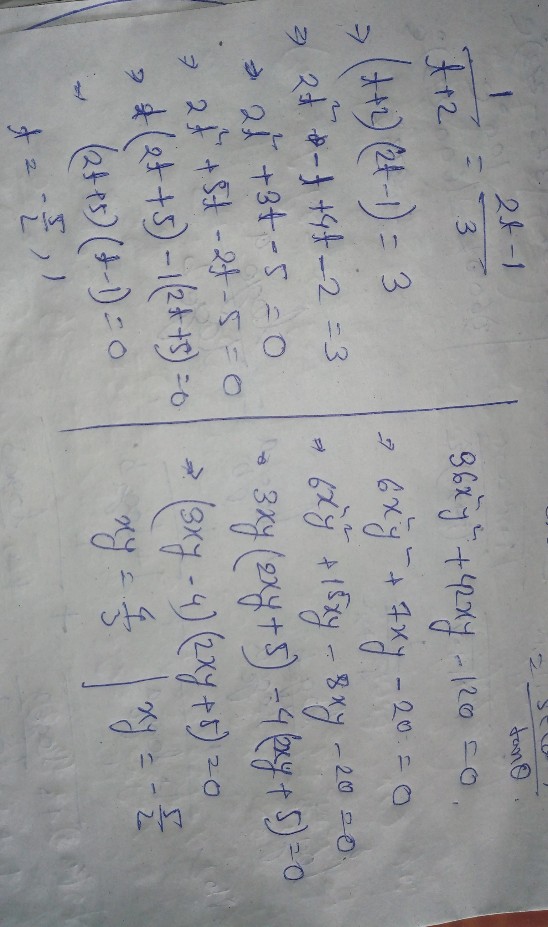 1/(t+2) = (2t-1)/3
⇒ (t+2) (2t-1) = 3
⇒ 2t² - t + 4t - 2 = 3
⇒ 2t² + 3t - 5 = 0
⇒ 2t² + 5t - 2t - 5 = 0
⇒ t(2t+5) - 1(2t+5) = 0
(2t+5) (t-1) = 0
t = -5/2, 1
36x²y² + 42xy - 120 = 0
⇒ 6x²y² + 7xy - 20 = 0
⇒ 6x²y² + 15xy - 8xy - 20 = 0
⇒ 3xy(2xy + 5) - 4(2xy + 5) = 0
⇒ (3xy - 4) (2xy + 5) = 0
xy = 4/3 | xy = -5/2
tanθ